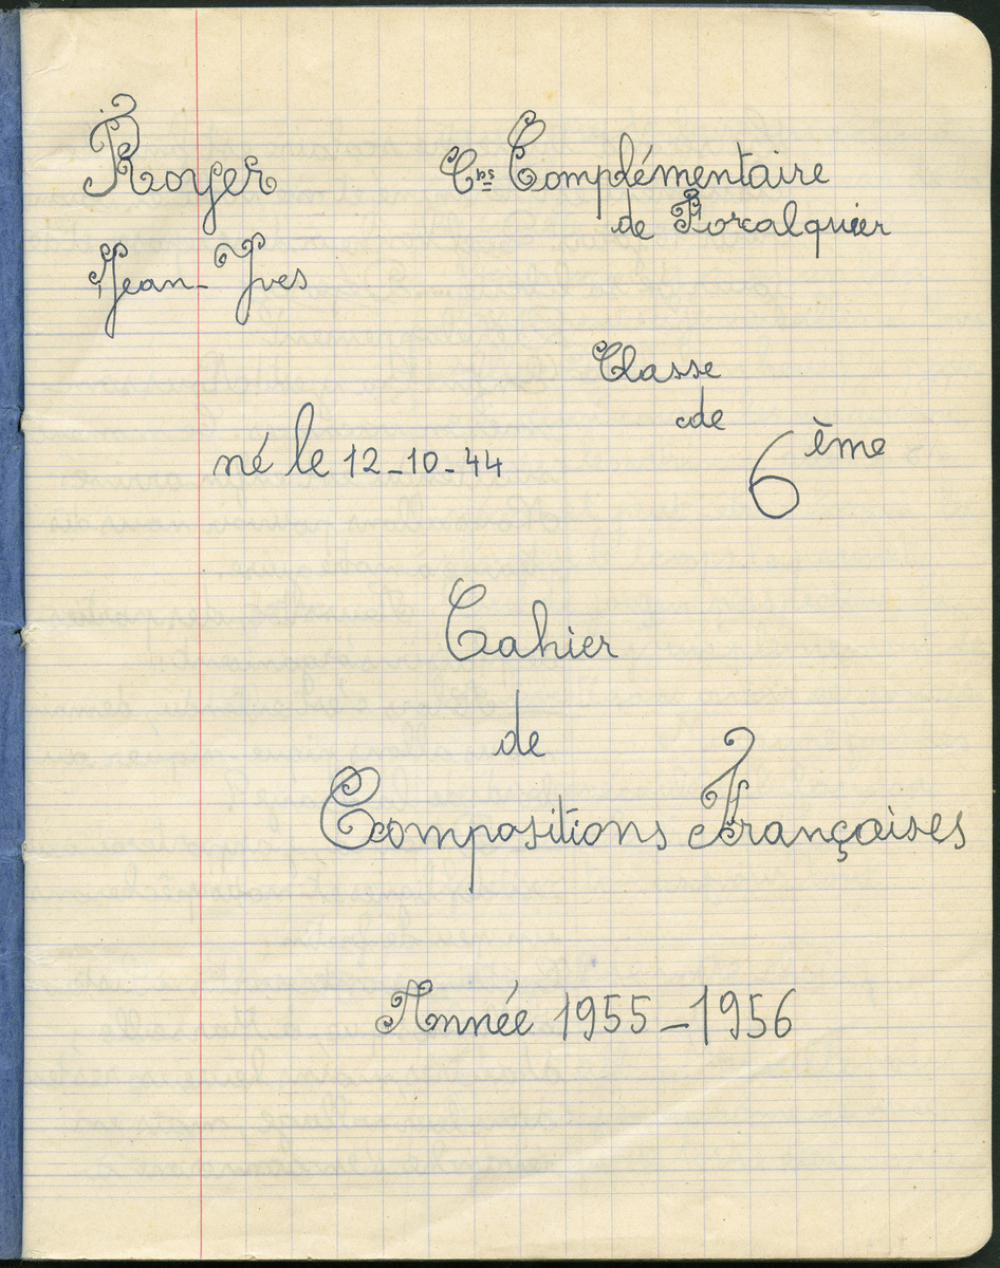 Royer
Jean-Yves
Crs Complémentaire
de Forcalquier
Classe
de
6ème
né le 12-10-44
Cahier
de
Compositions Françaises
Année 1955-1956